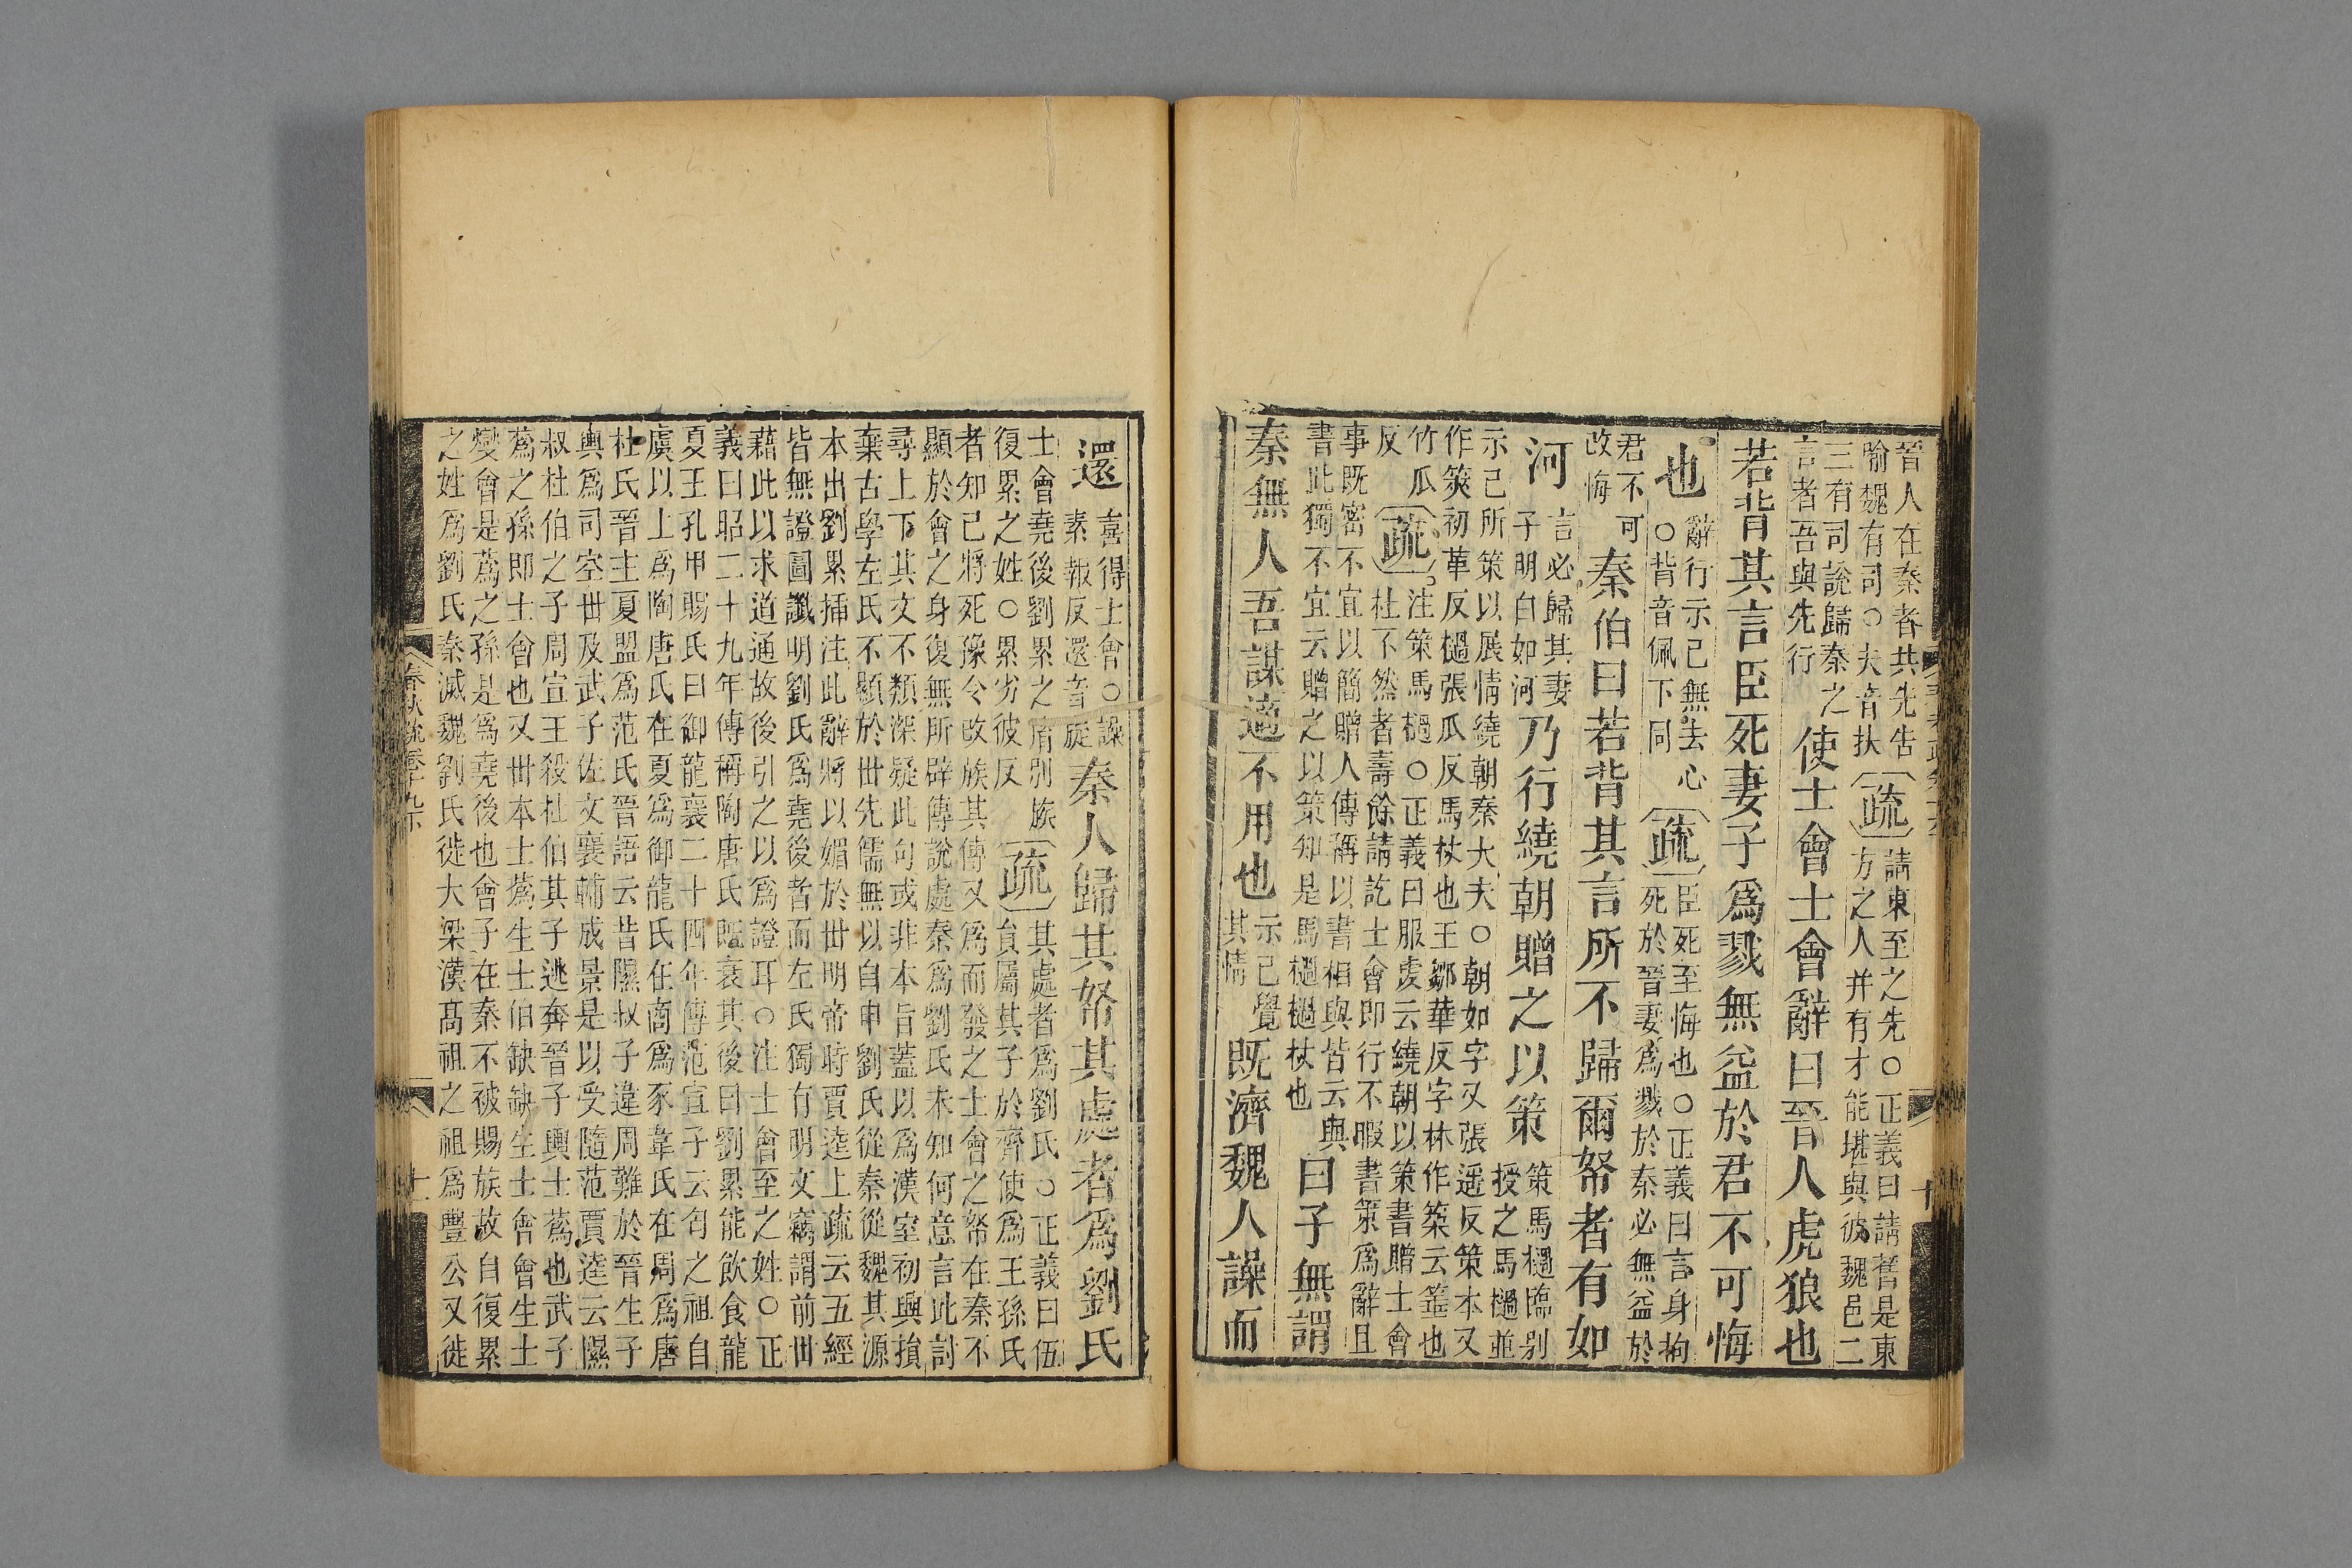 晉人在秦者共先告
喻魏有司○夫音扶
〔疏〕
請東至之先○正義曰請舊是東
方之人并有才能堪與彼魏邑二
三有司說歸秦之
言者吾與先行
使士會士會辭曰晉人虎狼也
若背其言臣死妻子爲戮無益於君不可悔
也
辭行示己無去心
○背音佩下同
〔疏〕
臣死至悔也○正義曰言身拘
死於晉妻爲戮於秦必無益於
君不可
改悔
秦伯曰若背其言所不歸爾帑者有如
河
言必歸其妻
子明白如河
乃行繞朝贈之以策
策馬檛臨别
授之馬檛並
示己所策以展情繞朝秦大夫○朝如字又張遥反策本又
作筴初革反檛張瓜反馬杖也王鄒華反字林作築云箠也
竹瓜
反
〔疏〕
注策馬檛○正義曰服虔云繞朝以策書贈士會
杜不然者壽餘請訖士會即行不暇書策爲辭且
事既密不宜以簡贈人傳稱以書相與皆云與
書此獨不宜云贈之以策知是馬檛檛杖也
曰子無謂
秦無人吾謀適不用也
示己覺
其情
既濟魏人譟而
還
喜得士會○譟
素報反還音旋
秦人歸其帑其處者爲劉氏
士會堯後劉累之胤别族
復累之姓○累劣彼反
〔疏〕
其處者爲劉氏○正義曰伍
員屬其子於齊使爲王孫氏
者知已將死豫令改族其傳又爲而發之士會之帑在秦不
顯於會之身復無所辟傳說處秦爲劉氏未知何意言此討
尋上下其文不類深疑此句或非本旨蓋以爲漢室初興損
棄古學左氏不顯於世先儒無以自申劉氏從秦從魏其源
本出劉累插注此辭將以媚於世明帝時賈逵上疏云五經
皆無證圖讖明劉氏爲堯後者而左氏獨有明文竊謂前世
藉此以求道通故後引之以爲證耳○注士會至之姓○正
義曰昭二十九年傳稱陶唐氏既衰其後曰劉累能飲食龍
夏王孔甲賜氏曰御龍襄二十四年傳范宣子云匄之祖自
虞以上爲陶唐氏在夏爲御龍氏在商爲豕韋氏在周爲唐
杜氏晉主夏盟爲范氏晉語云昔隰叔子違周難於晉生子
輿爲司空世及武子佐文襄輔成景是以受隨范賈逵云隰
叔杜伯之子周宣王殺杜伯其子逃奔晉子輿士蒍也武子
蒍之孫即士會也又世本士蒍生士伯缺缺生士會會生士
燮會是蒍之孫是爲堯後也會子在秦不被賜族故自復累
之姓爲劉氏秦滅魏劉氏徙大梁漢高祖之祖爲豐公又徙